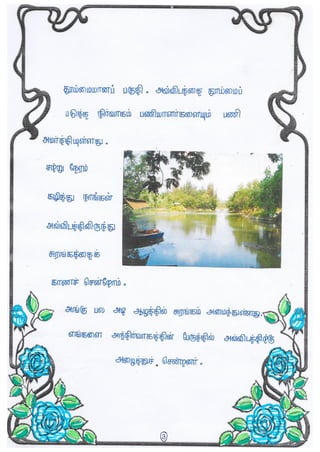 தூய்மையானப் பகுதி. அவ்விடத்தை தூய்மைப்
படுத்த நிர்வாகம் பணியாளர்களையும் பணி
அமர்த்தியுள்ளது.
சற்று நேரம்
கழித்து நாங்கள்
அவ்விடத்திலிருந்து
சுரங்கத்தைக்
காணச் சென்றோம்.
அங்கு பல அடி ஆழத்தில் சுரங்கம் அமைந்துள்ளது.
எங்களை அந்நிர்வாகத்தின் பேருந்தில் அவ்விடத்திற்கு
அழைத்துச் சென்றனர்.
3